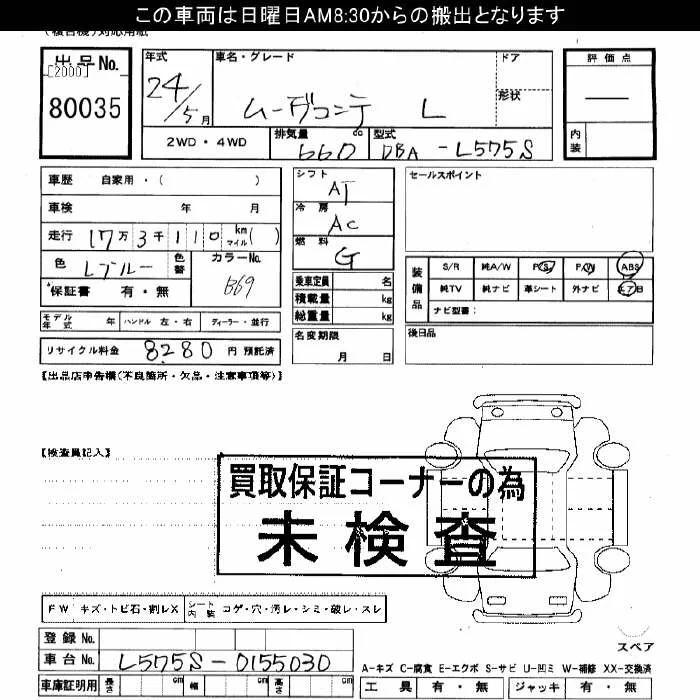 この車両は日曜日AM8:30からの搬出となります
(複合機)対応用紙
出品No.
[2000]
80035
年式
24/5月
車名・グレード
ムーヴコンテ L
ドア
形状
評価点
―
内装
2WD・4WD
排気量 cc
660
型式
DBA-L575S
車歴 自家用・( )
車検 年 月
走行 17万3千110 km マイル( )
色 Lブルー
色替
カラーNo.
B69
*保証書 有・無
シフト
AT
冷房
AC
燃料
G
乗車定員 名
積載量 kg
総重量 kg
セールスポイント
装備品
S/R 純A/W P/S P/W ABS
純TV 純ナビ 革シート 外ナビ エアB
ナビ型番:
モデル年式 年 ハンドル 左・右 ディーラー・並行
リサイクル料金 8280 円 預託済
名変期限
月 日
後日品
【出品店申告欄(不良箇所・欠品・注意事項等)】
【検査員記入】
買取保証コーナーの為
未検査
FW キズ・トビ石・割レX
シート内装 コゲ・穴・汚レ・シミ・破レ・スレ
登録No.
車台No. L575S-0155030
スペア
A-キズ C-腐食 E-エクボ S-サビ U-凹ミ W-補修 XX-交換済
車庫証明用 長さ cm 幅 cm 高さ cm
工具 有・無 ジャッキ 有・無